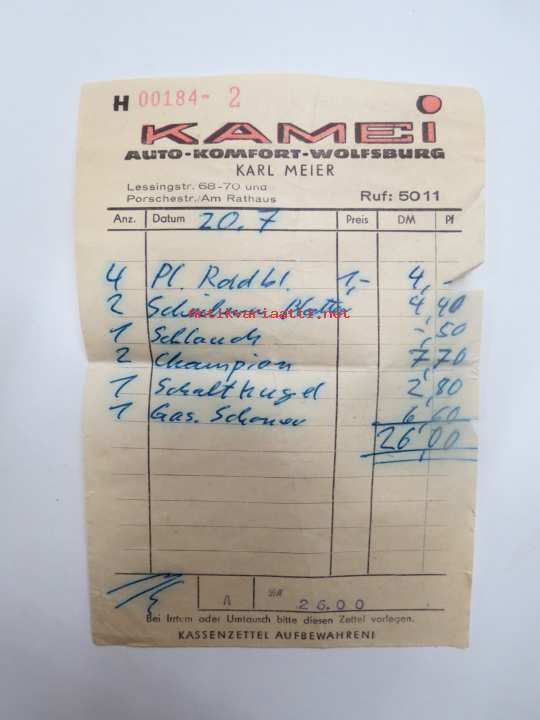 H 00184- 2
KAMEI
AUTO-KOMFORT-WOLFSBURG
KARL MEIER
Lessingstr. 68-70 und
Porschestr./Am Rathaus Ruf: 5011
Anz. Datum 20.7 Preis DM Pf
4 Pl. Radbl. 1,- 4,-
2 4,40
antikvariaatti.net
1 Schlauch -,50
2 Champion 7,70
1 Schaltkugel 2,80
1 Gas. Schoner 6,60
26,00
A DM 26.00
Bei Irrtum oder Umtausch bitte diesen Zettel vorlegen.
KASSENZETTEL AUFBEWAHREN!